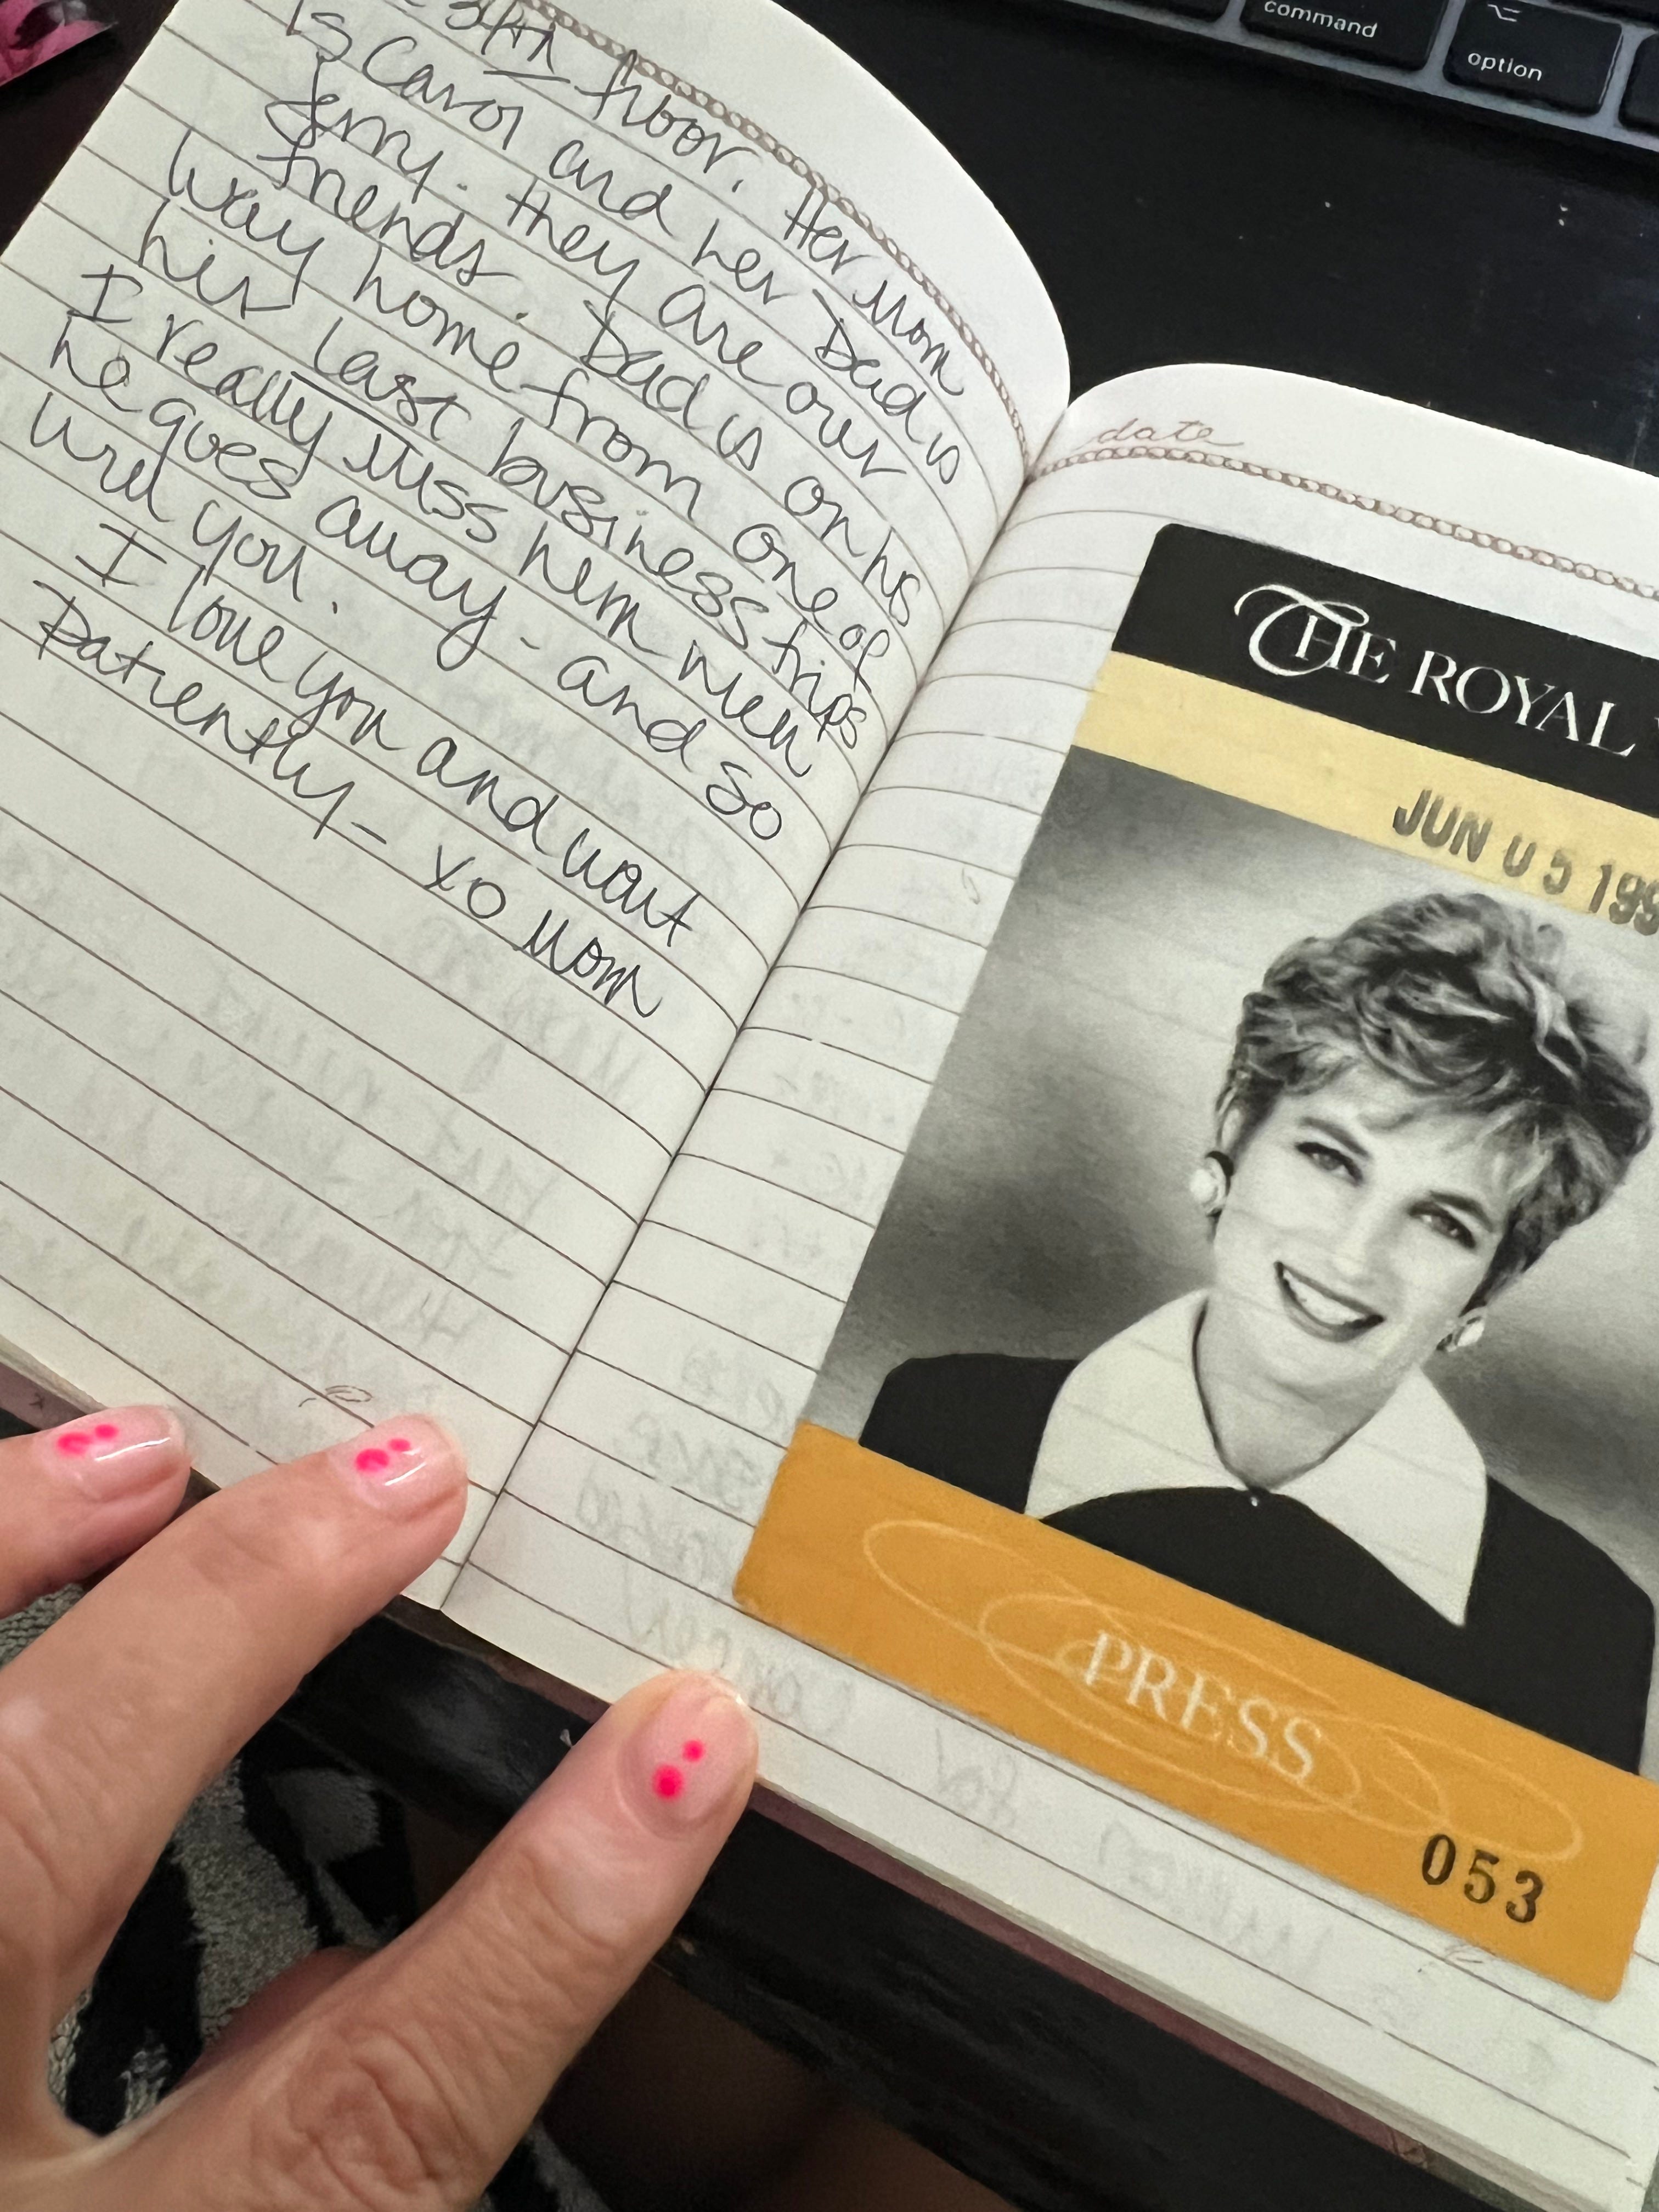 floor. Her Mom
is Carol and her Dad is
Jerry. They are our
friends. Dad is on his
way home from one of
his last business trips
I really miss him when
he goes away - and so
will you.
I love you and wait
Patiently - XO Mom
date
THE ROYAL
JUN 05 199
PRESS
053
command
option